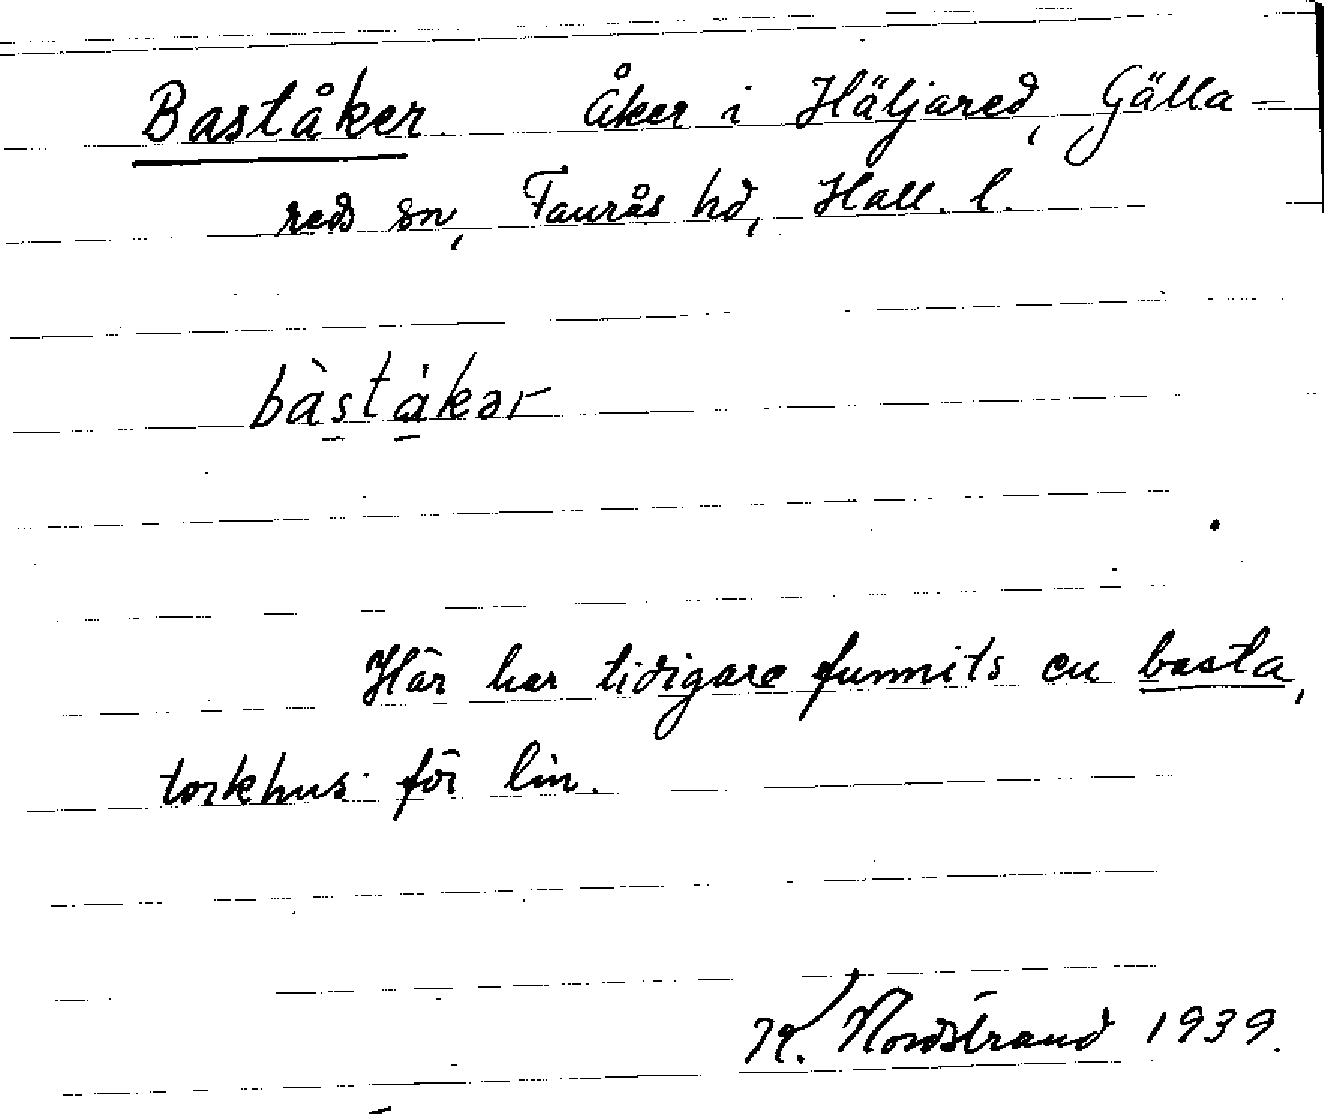 Baståker. Åker i Häljared, Gälla-
reds sn, Faurås hd, Hall. l.
bàst̠a̠̍kər
Här har tidigare funnits en basta,
torkhus för lin.
K. Nordstrand 1939.